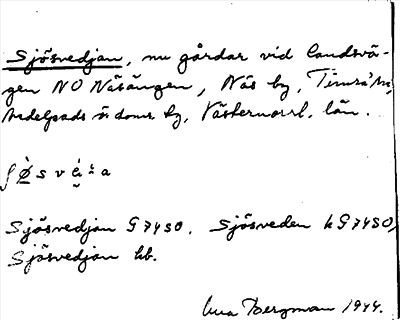 Sjösvedjan, nu gårdar vid landsvä-
gen NO Näsängen, Näs by, Timrå sn,
Medelpads ö. doms. by, Västernorrl. län.
Sjösvedjan G 7450. Sjösveden k G 7450,
Sjösvedjan hb.
Bergman 1944.